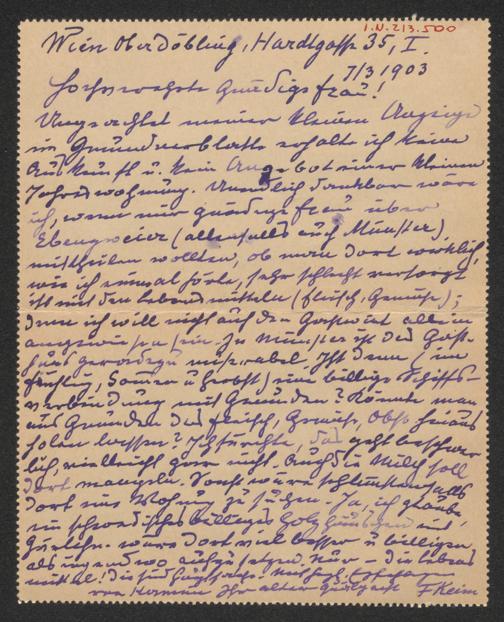 I.N. 213.500
Wien Oberdöbling, Hardtgasse 35, I.
7/3 1903
Hochverehrte gnädige Frau!
Ungeachtet meiner kleinen Anzeige
im Gmundnerblatte erhalte ich keine
Auskunft u. kein Angebot einer kleinen
Jahreswohnung. Unendlich dankbar wäre
ich, wenn mir gnädige Frau über
Ebenzweier (allenfalls auch Münster)
mittheilen wollten, ob man dort wirklich,
wie ich einmal hörte, sehr schlecht versorgt
ist mit den Lebensmitteln (Fleisch, Gemüse);
denn ich will nicht auf den Gastwirt allein
angewiesen sein. In Münster ist das Gast-
haus geradezu miserabel. Ist denn (im
Frühling, Sommer u Herbst) eine billige Schiffs-
verbindung mit Gmunden? Könnte man
aus Gmunden das Fleisch, Gemüse, Obst heraus
holen lassen? Ich fürchte, das geht beschwer
lich, vielleicht gar nicht. Auch die Milch soll
dort mangeln. Sonst wäre schlimmstenfalls
dort eine Wohnung zu suchen. Ja, ich glaube
ein schwedisches billiges Holzhäuschen mit
Gärtchen wäre dort viel besser u billiger
als irgendwo aufzusetzen. Nur – die Lebens
mittel! Die sind
von Ihr alter FKeim